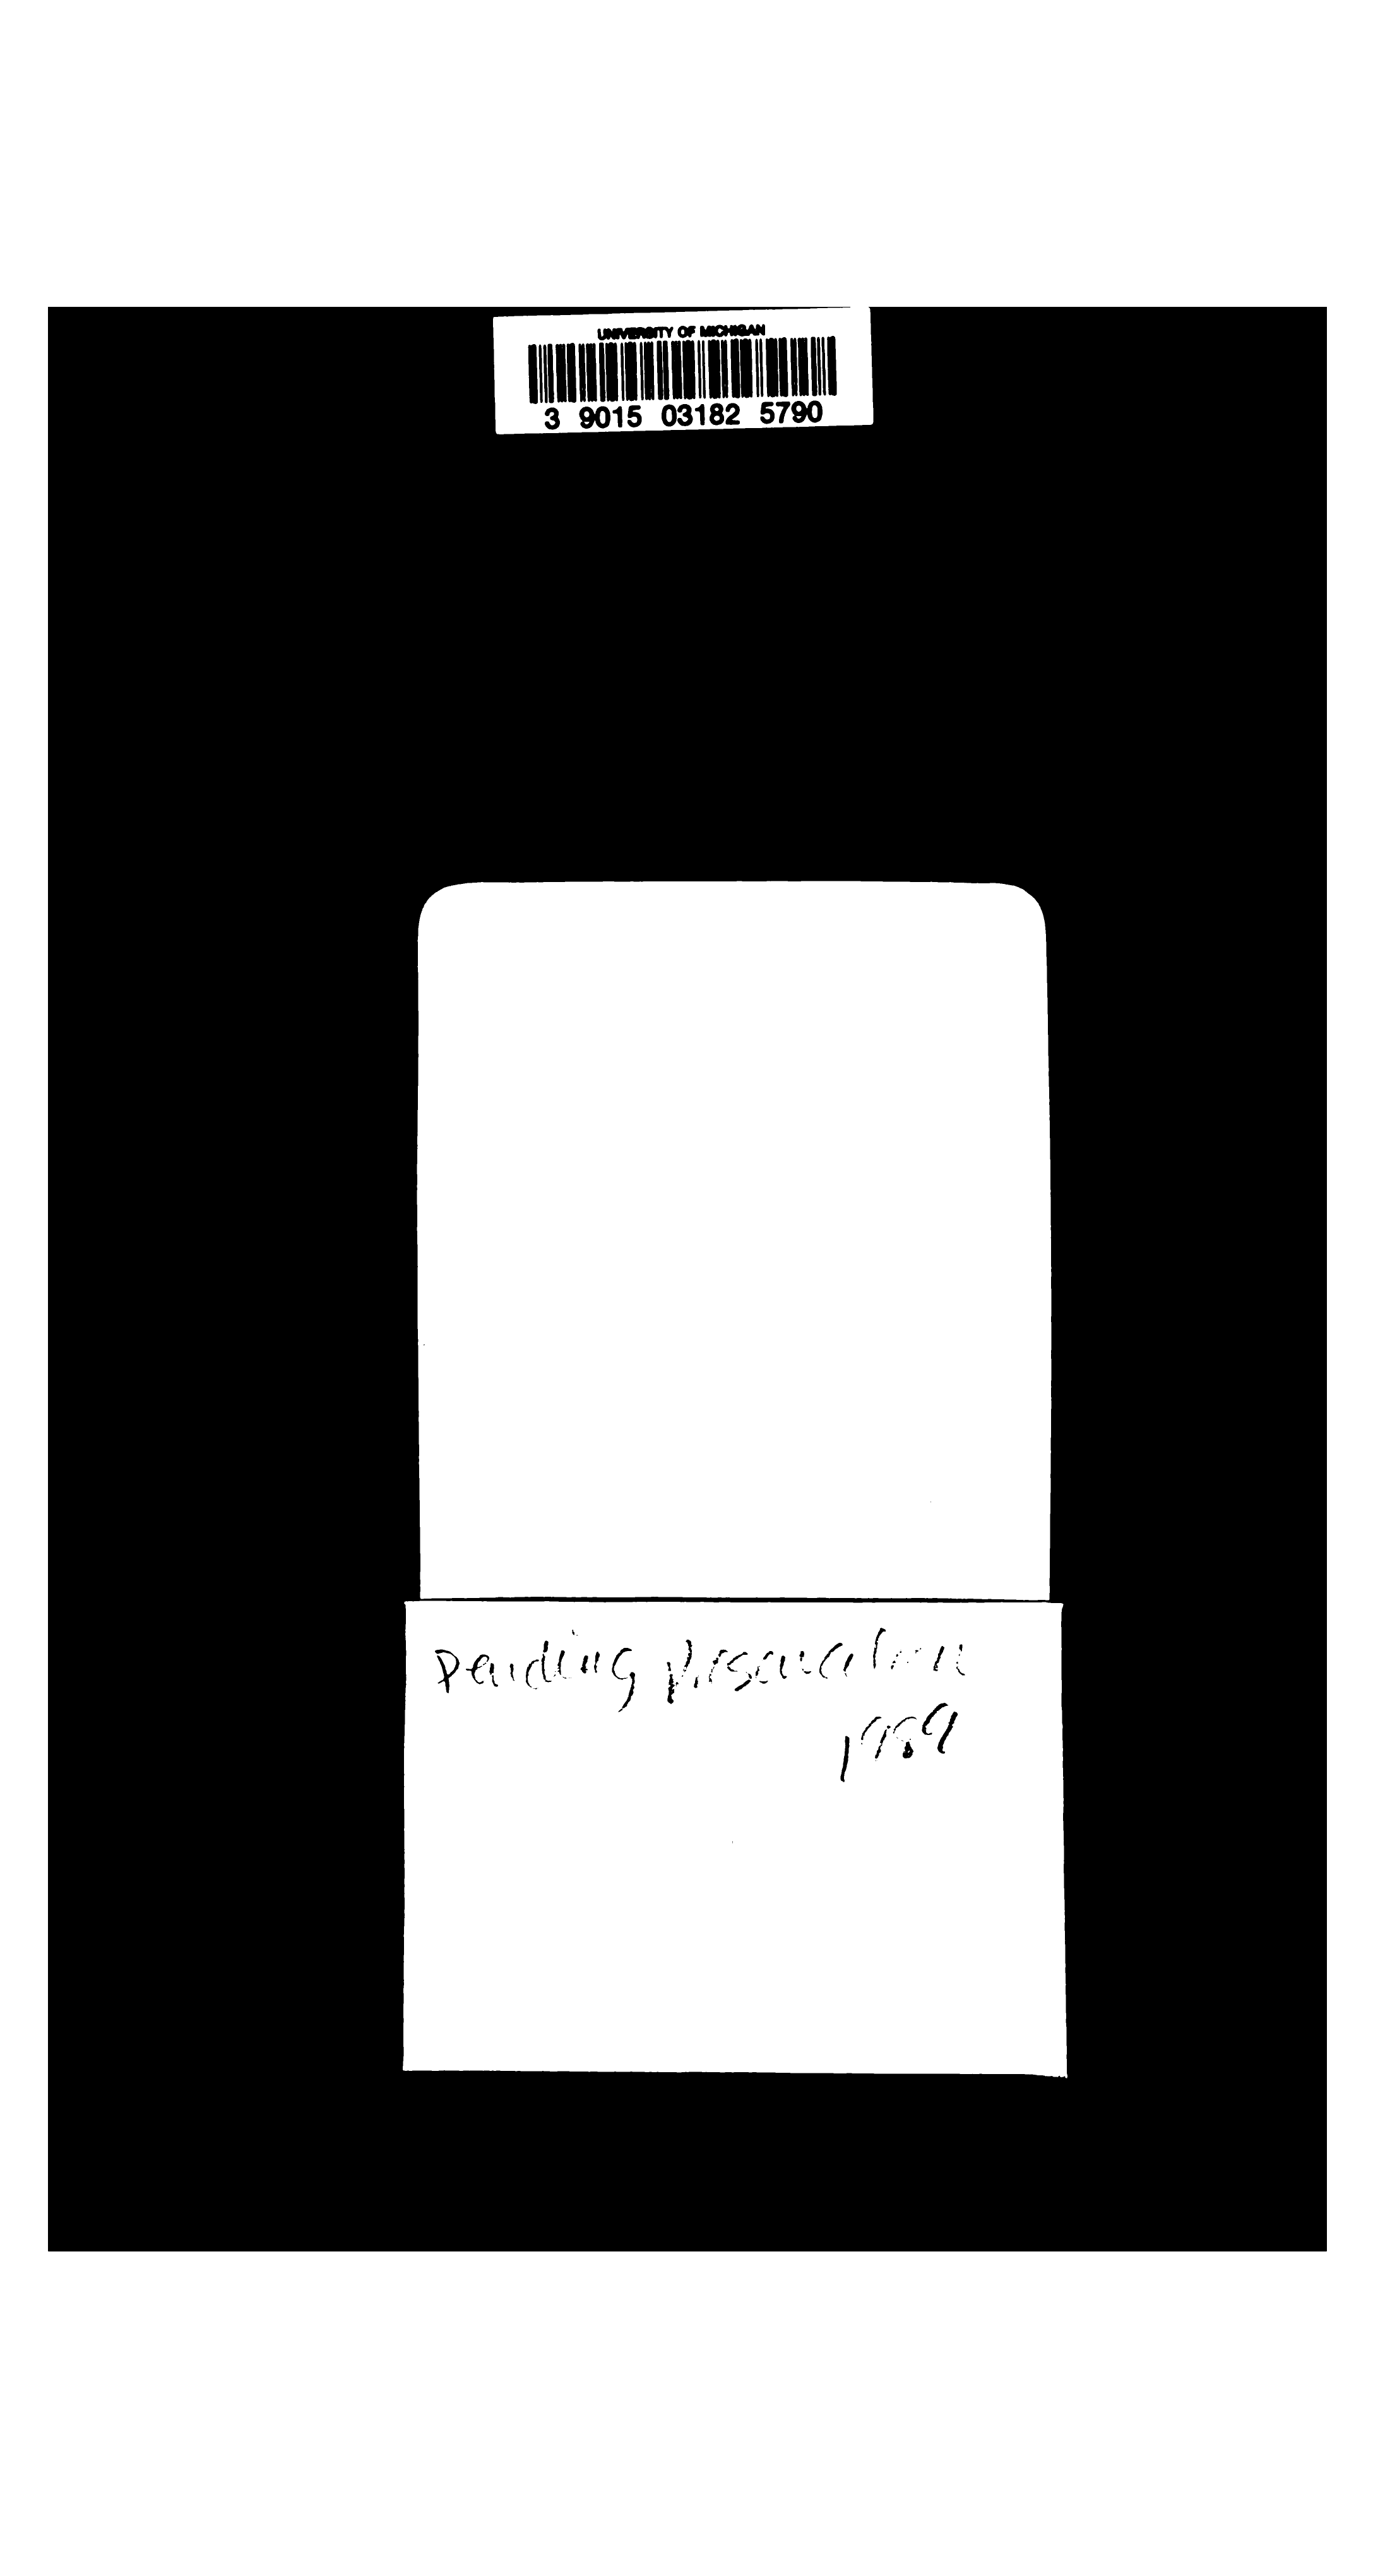 UNIVERSITY OF MICHIGAN
3 9015 03182 5790
Pending Preservation
1989